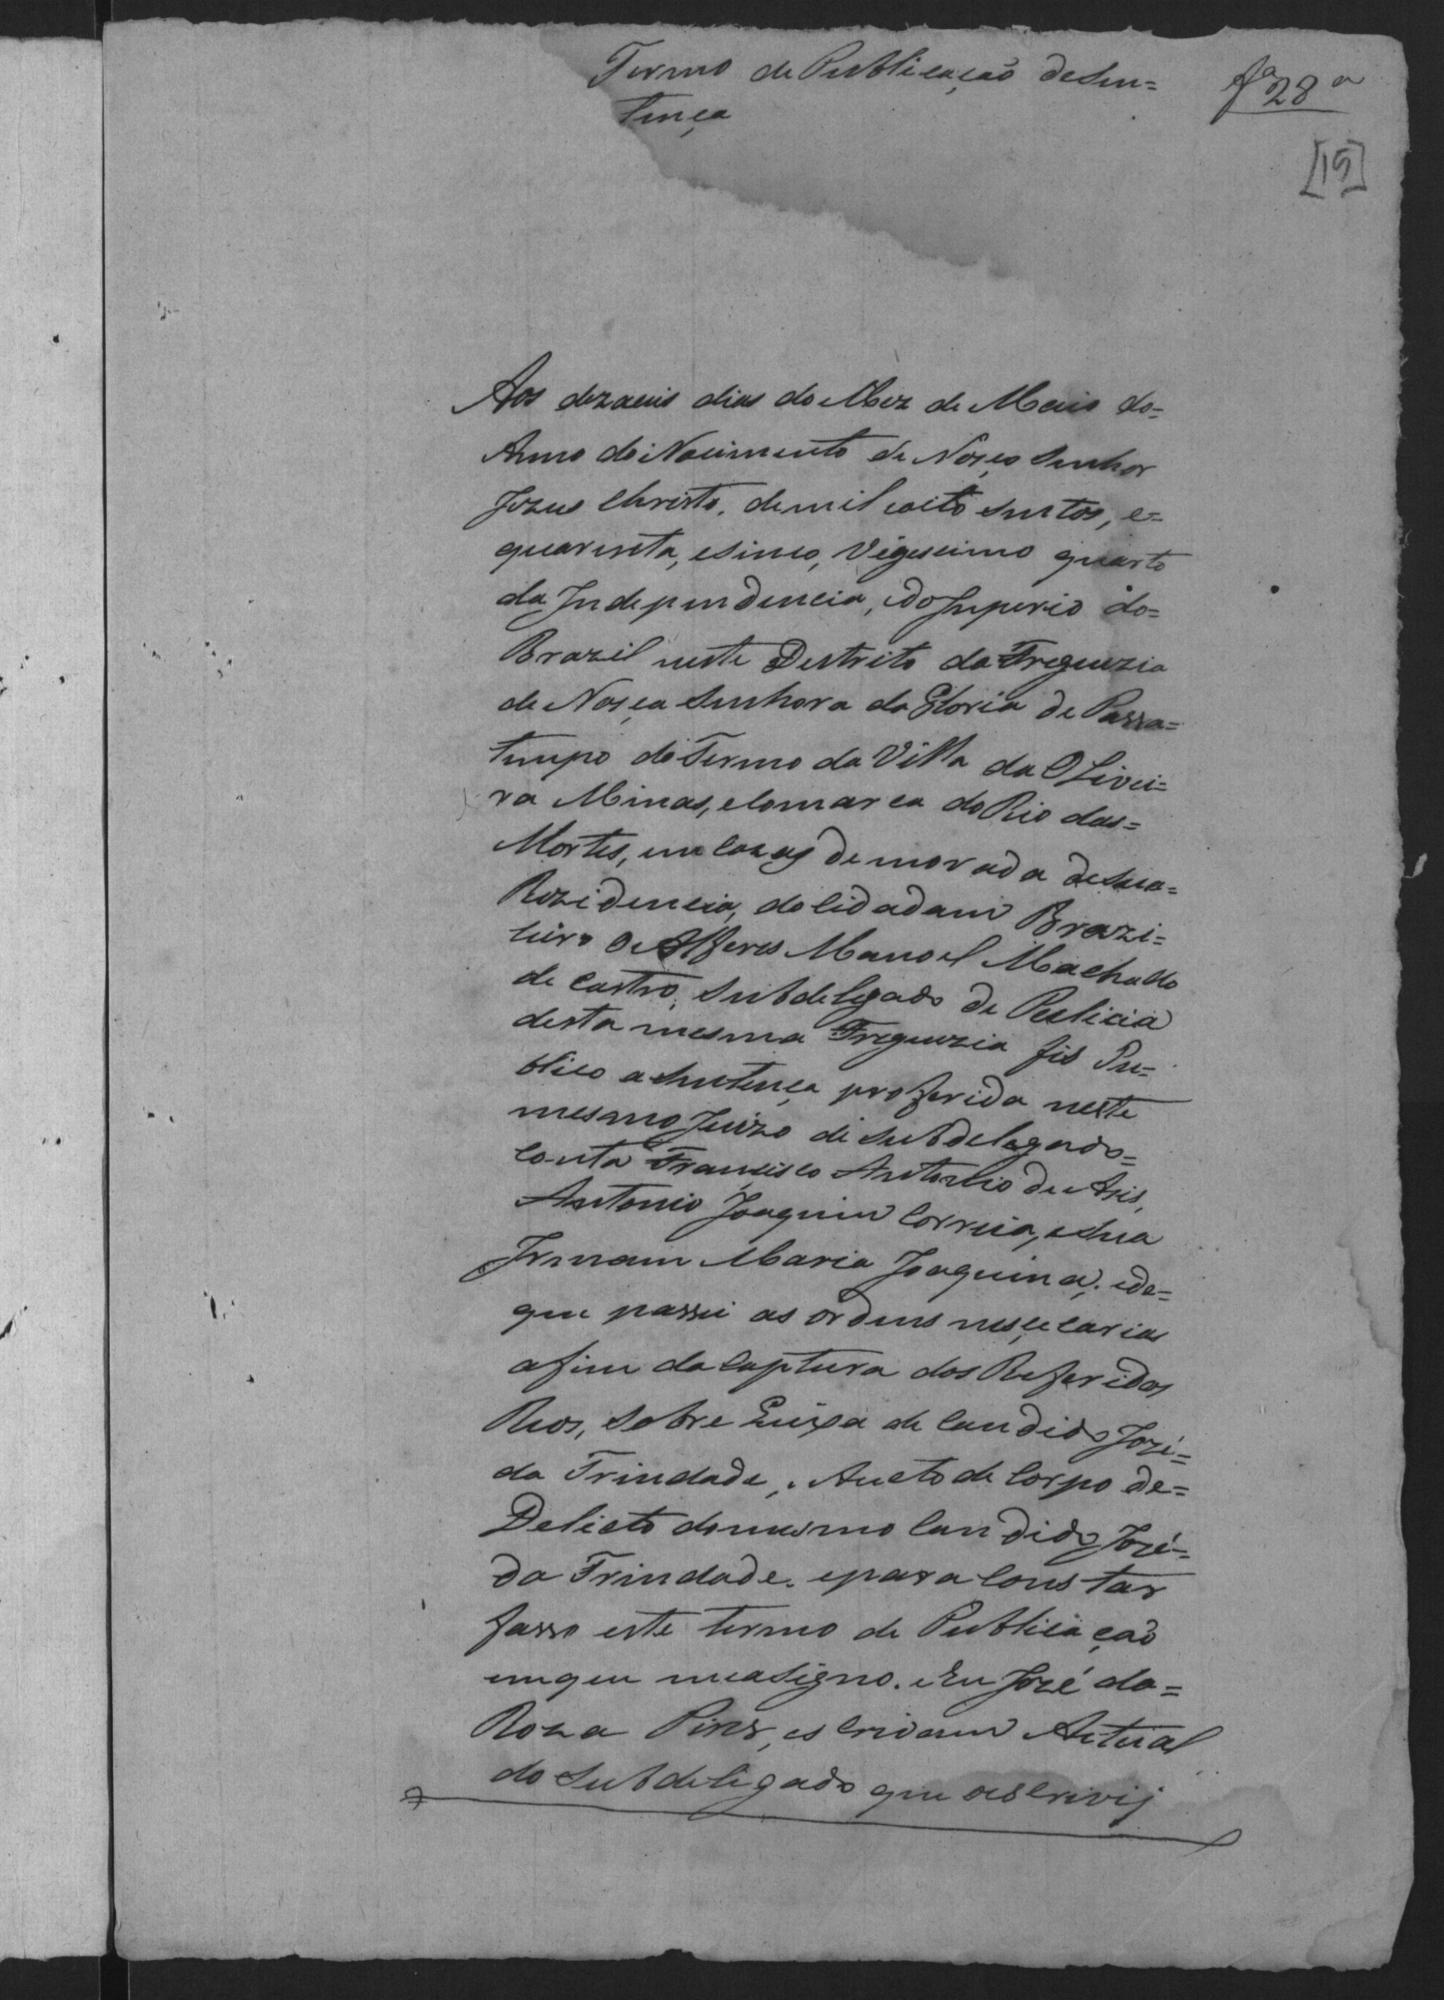 Termo de Publicação deSen=
tença
fª 28ª
[15]
Aos dezaceis dias do Mez de Maio do=
Anno do Nacimento de Noșço Senhor
Jezus Christo, de mil eoito Sentos, e=
quarenta, esinco, Vigecimo quarto
da Independencia, edo Imperio do=
Brazil neste Destrito da Freguezia
de Nosça Senhora da Gloria de Passa=
tempo do Termo da Villa da OLivei=
ra Minas, eComarca do Rio das=
Mortes, em Cazas de morada deSua=
Rezidencia, do Cidadam Brazi=
leiro o Alferes Manoel Machado
de Castro, Subdelegado de Pulicia
desta mesma Freguezia fis Pu=
blico aSentença proferida neste
mesmo Juizo de Subdelegado=
Conta Francisco Antonio de Asis,
Antonio Joaquim Correia, eSua
Irmam Maria Joaquina, ede=
que passei as ordens nesçeçarias
afim da Captura dos Referidos
Reos, Sobre Queixa de Candido Jozé=
da Trindade, Aucto de Corpo de=
Delicto domesmo Candido Jozé=
da Trindade. epara Constar
fasso este termo de Publicação
emque meaSigno. Eu Jozé da=
Roza Pires, esCrivam Actual
do Subdelegado que oesCrivij